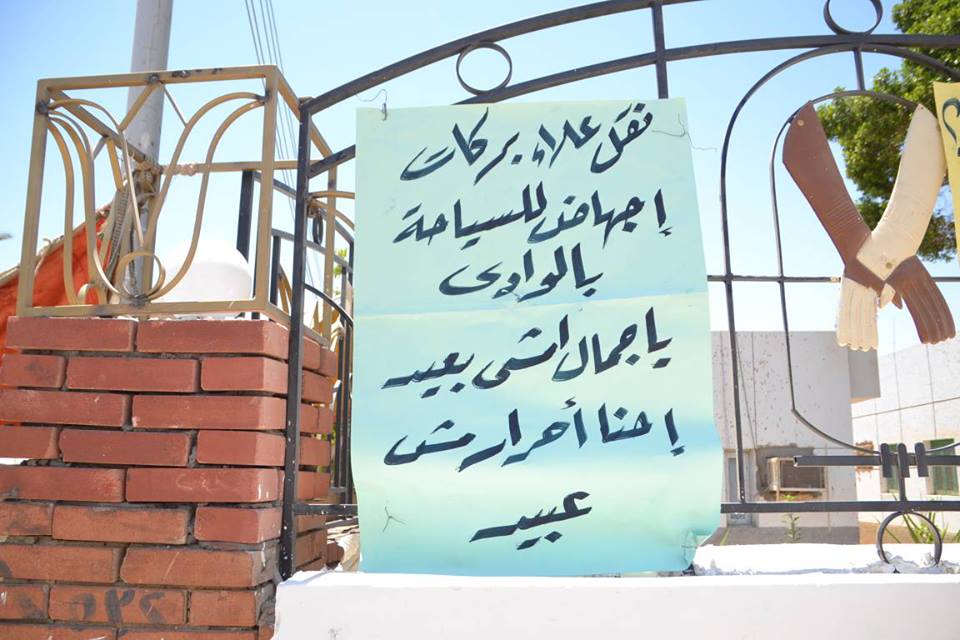 نقل علاء بركات
إجهاض للسياحة
بالوادى
يا جمال امشى بعيد
إحنا أحرار مش
عبيد